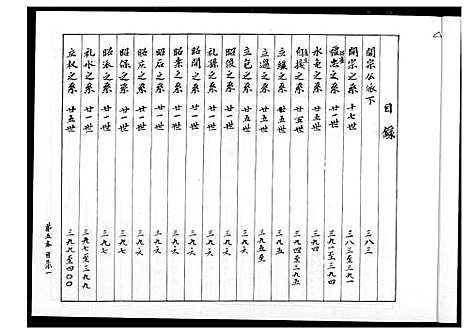 目錄
開宗公派下 三八三
開宗之系 十七世 三八三至三九一
忠之系 廿一世 三九一至三九四
永之系 廿一世 三九四
自之系 廿五世 三九四至三九五
立耀之系 廿五世 三九五
立過之系 廿五世 三九五至
立包之系 廿五世 三九六
昭復之系 廿一世 三九六
礼孫之系 廿一世 三九六
昭閏之系 廿一世 三九六
昭素之系 廿一世 三九六
昭石之系 廿一世 三九六
昭庆之系 廿一世 三九六
昭保之系 廿一世 三九七
昭派之系 廿一世 三九七
礼水之系 廿一世 三九七至三九九
立权之系 廿五世 三九九至四〇〇
第五本 目录一